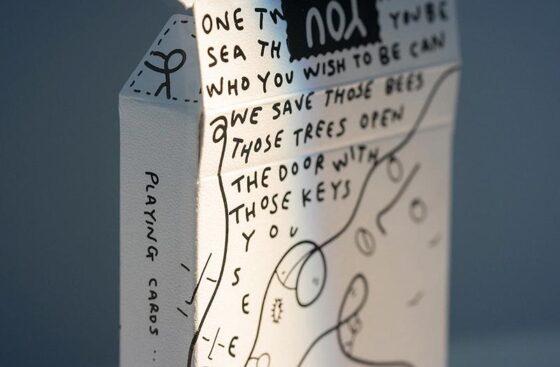 ONE
YOU
YOU BE
SEA
WHO YOU WISH TO BE CAN
WE SAVE THOSE BEES
THOSE TREES OPEN
THE DOOR WITH
THOSE KEYS
YOU
S
E
E
PLAYING CARDS ..